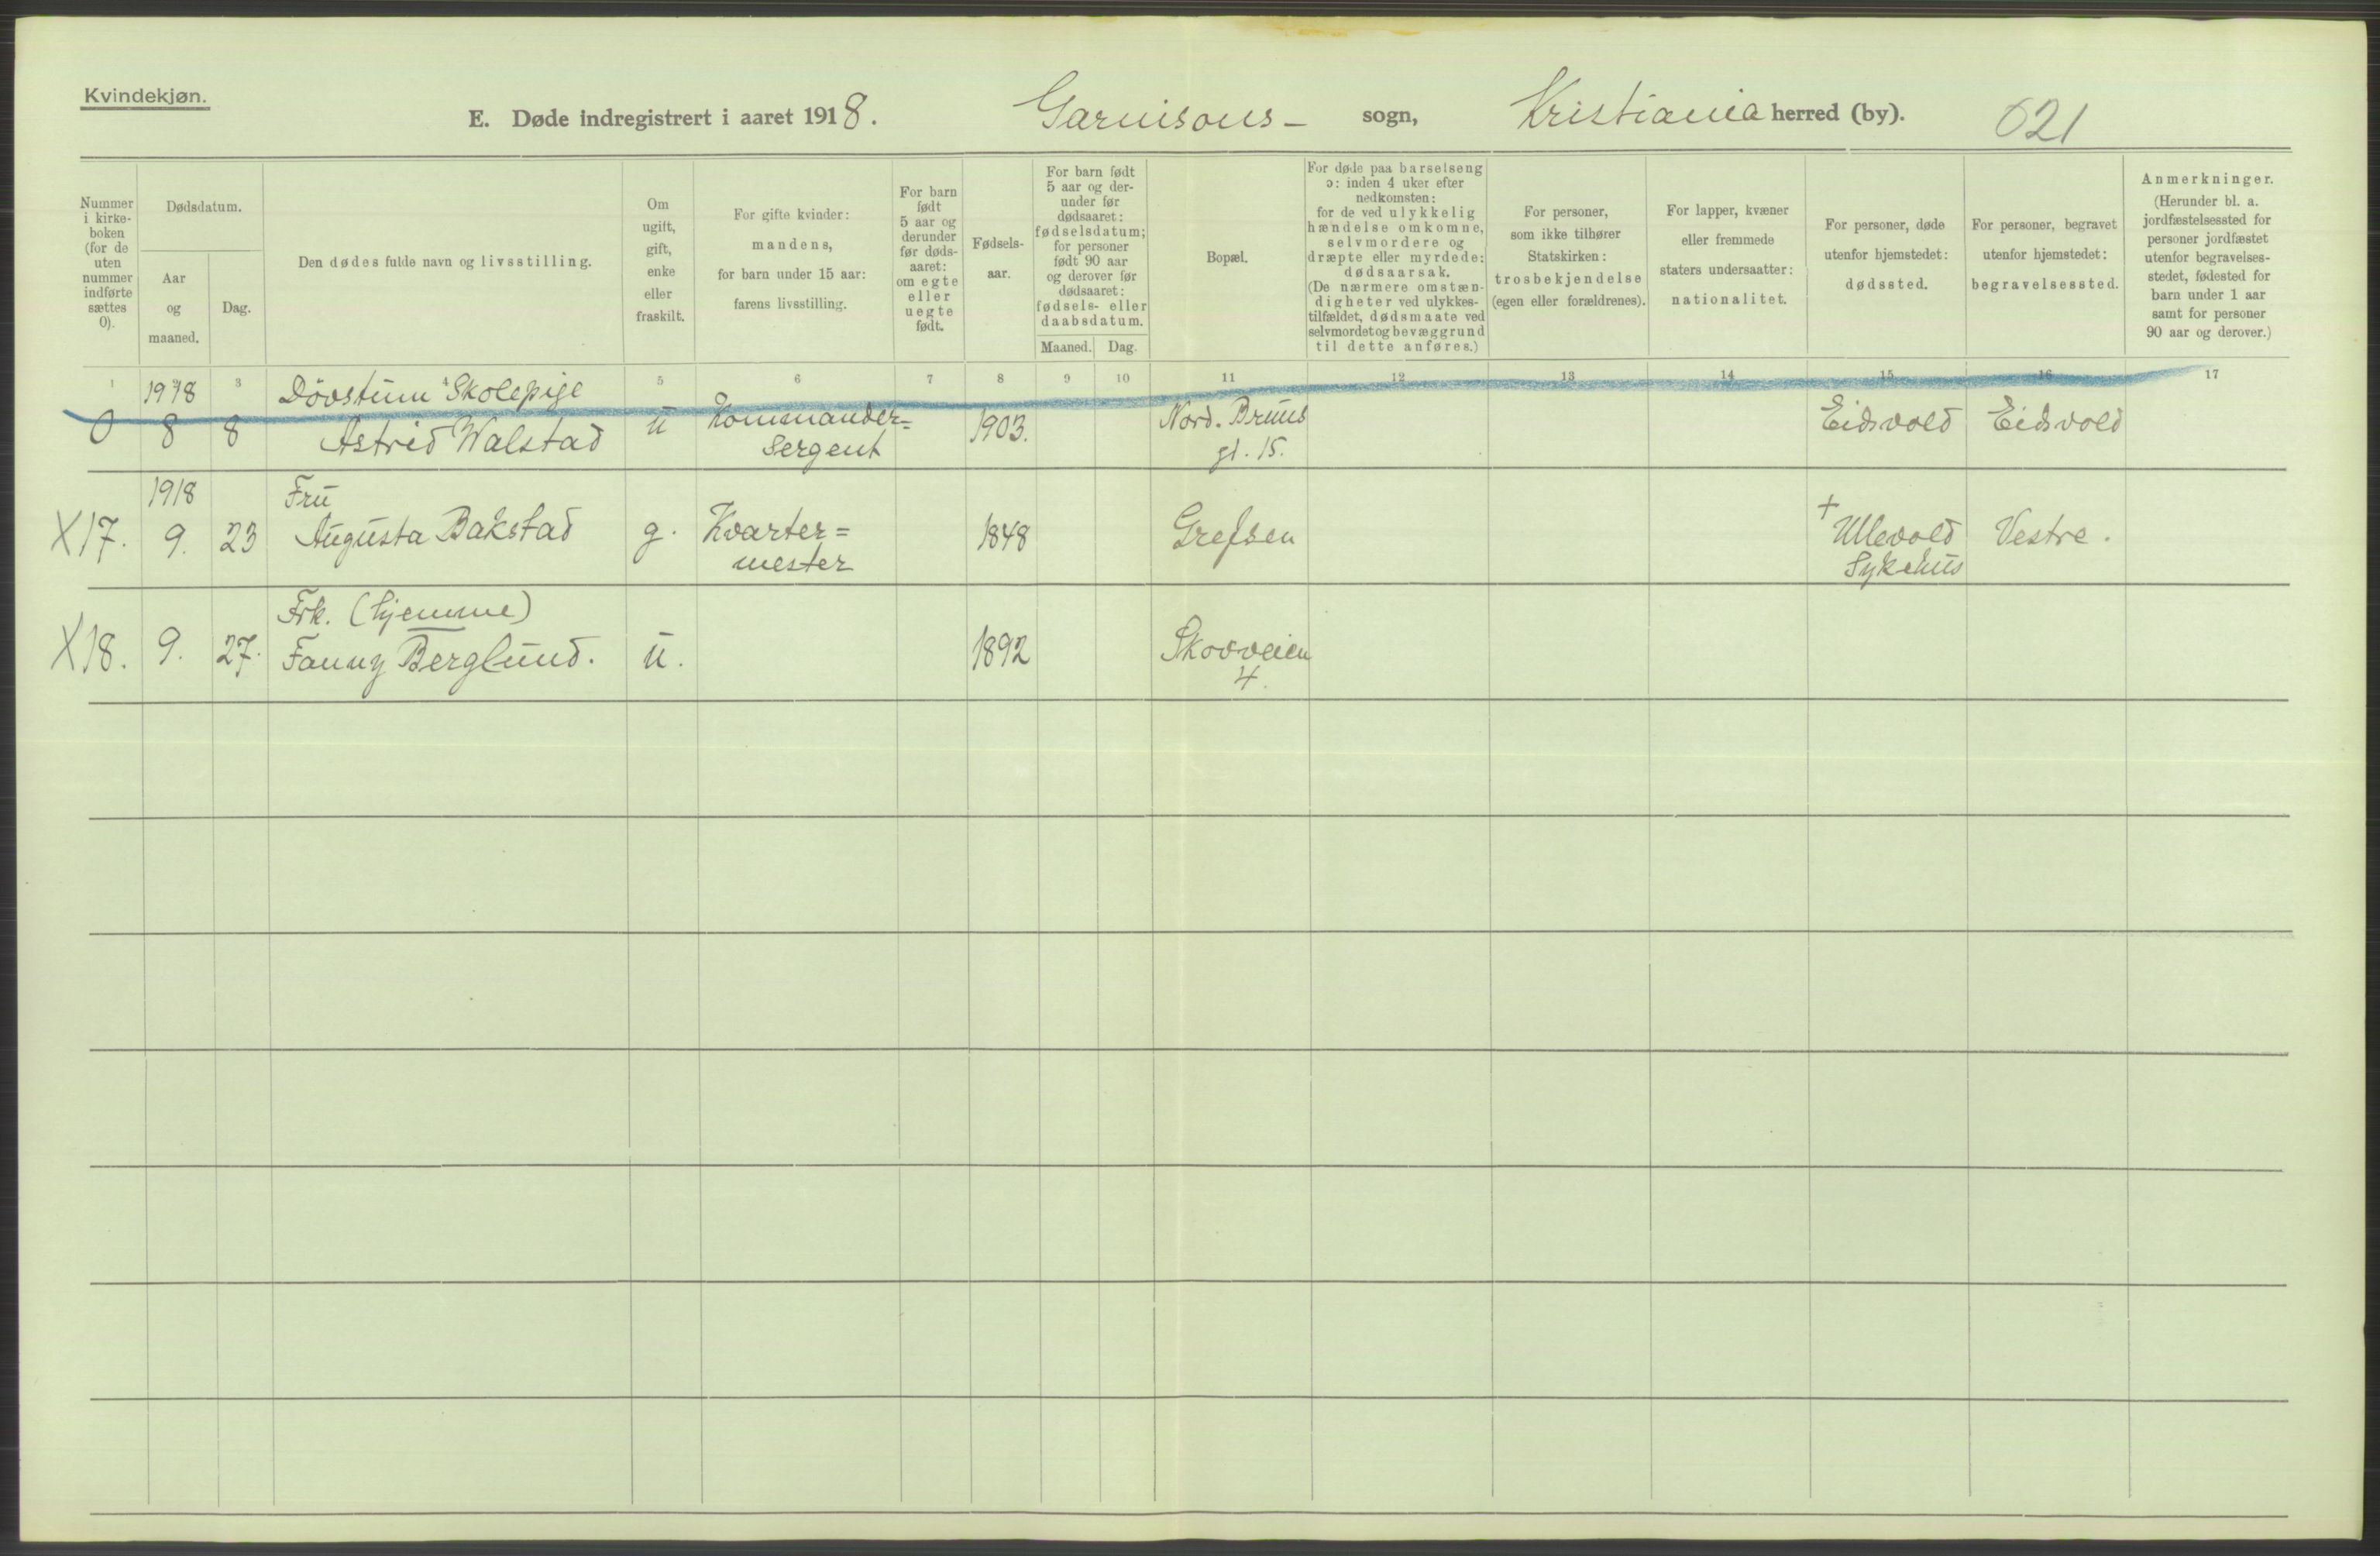 Kvindekjøn.
E. Døde indregistrert i aaret 1918. Garnisons- sogn, Kristiania herred (by). 621
Nummer
i kirke-
boken
(for de
uten
nummer
indførte
sættes
0).
Dødsdatum.
Aar
og
maaned.
Dag.
Den dødes fulde navn og livsstilling.
Om
ugift,
gift,
enke
eller
fraskilt.
For gifte kvinder:
mandens,
for barn under 15 aar:
farens livsstilling.
For barn
født
5 aar og
derunder
før døds-
aaret:
om egte
eller
uegte
født.
Fødsels-
aar.
For barn født
5 aar og der-
under før
dødsaaret:
fødselsdatum;
for personer
født 90 aar
og derover før
dødsaaret:
fødsels- eller
daabsdatum.
Maaned. Dag.
Bopæl.
For døde paa barselseng
ɔ: inden 4 uker efter
nedkomsten:
for de ved ulykkelig
hændelse omkomne,
selvmordere og
dræpte eller myrdede:
dødsaarsak.
(De nærmere omstæn-
digheter ved ulykkes-
tilfældet, dødsmaate ved
selvmordet og bevæggrund
til dette anføres.)
For personer,
som ikke tilhører
Statskirken:
trosbekjendelse
(egen eller forældrenes).
For lapper, kvæner
eller fremmede
staters undersaatter:
nationalitet.
For personer, døde
utenfor hjemstedet:
dødssted.
For personer, begravet
utenfor hjemstedet:
begravelsessted.
Anmerkninger.
(Herunder bl. a.
jordfæstelsessted for
personer jordfæstet
utenfor begravelses-
stedet, fødested for
barn under 1 aar
samt for personer
90 aar og derover.)
1 3 4 5 6 7 8 9 10 11 12 13 14 15 16 17
1918 Døvstum Skolepige
0 8 8 Astrid Walstad u Kommander= 1903. Nord. Bruns Eidsvold Eidsvold
Sergent gt. 15.
1918 Fru
X17. 9. 23 Augusta Bakstad g. Kvarter= 1848 Grefsen + Ullevold Vestre.
mester Sykehus
Frk. (hjemme)
X18. 9. 27. Fanny Berglund. u. 1892 Skovveien
4.